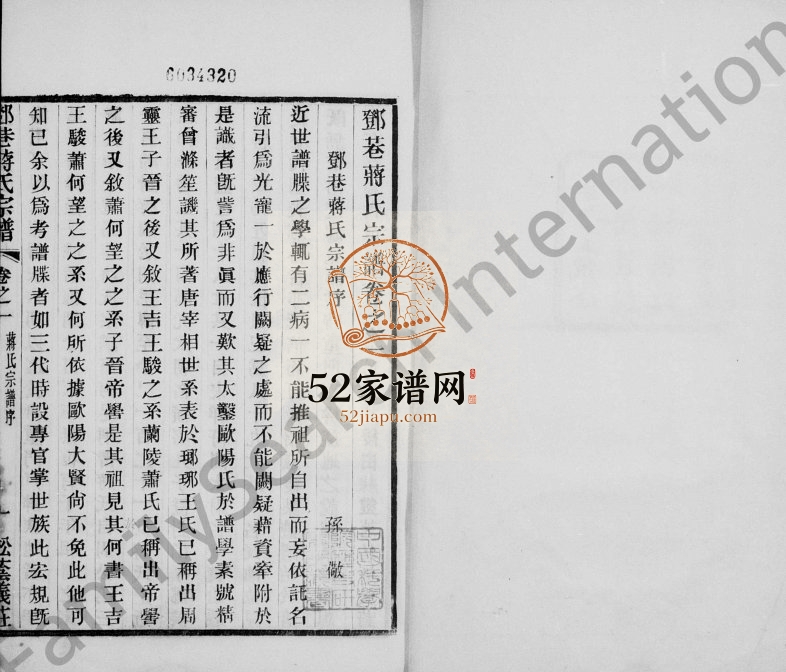 6034320
鄧巷蔣氏宗譜卷之一
鄧巷蔣氏宗譜序
孫儆
近世譜牒之學輒有二病一不能推祖所自出而妄依託名
流引爲光寵一於應行闕疑之處而不能闕疑藉資牽附於
是識者既訾爲非眞而又歎其太鑿歐陽氏於譜學素號精
審曾滌笙譏其所著唐宰相世系表於瑯琊王氏已稱出周
靈王子晉之後又敘王吉王駿之系蘭陵蕭氏已稱出帝嚳
之後又敘蕭何望之之系子晉帝嚳是其祖見其何書王吉
王駿蕭何望之之系又何所依據歐陽大賢尙不免此他可
知已余以爲考譜牒者如三代時設專官掌世族此宏規既
鄧巷蔣氏宗譜
卷之一
蔣氏宗譜序
一
松蔭義莊
52家谱网
52jiapu.com
FamilySearch International